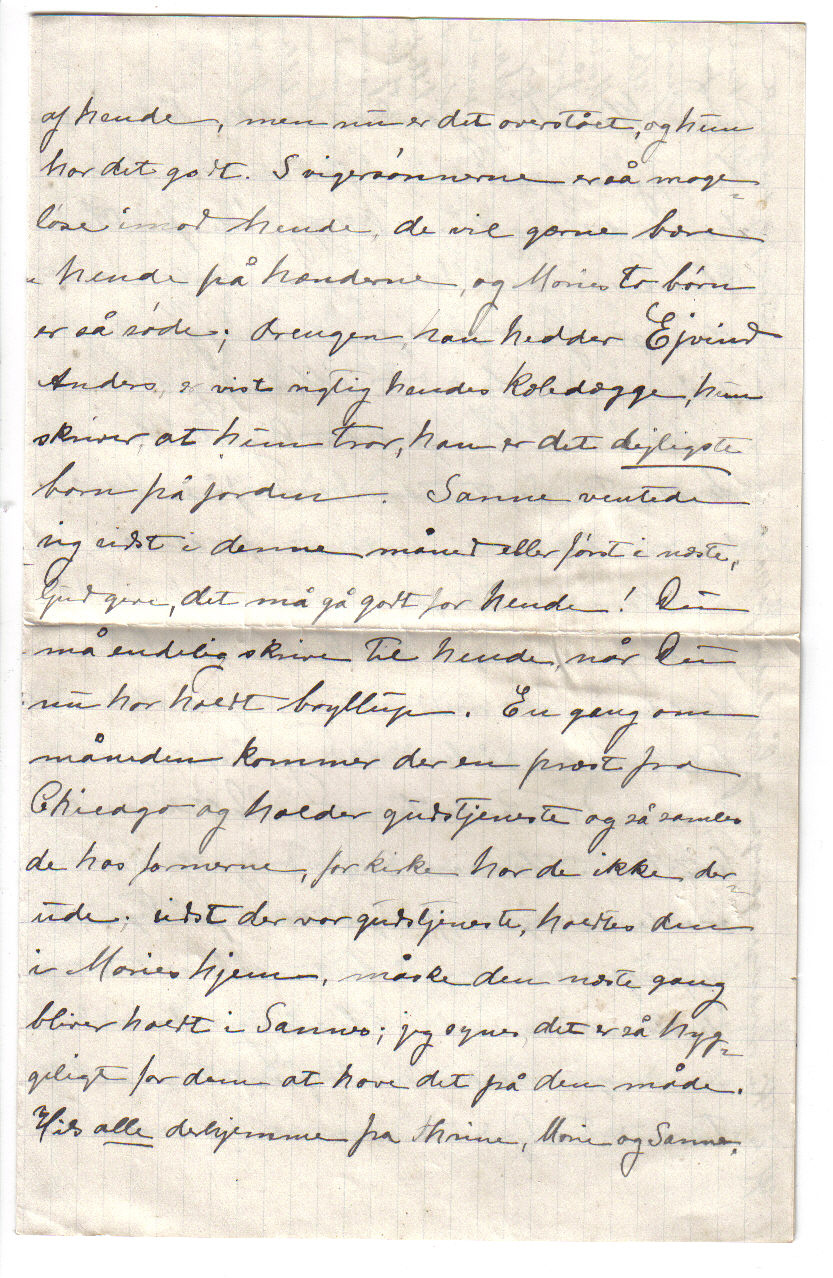 af hende, men nu er det overstået, og hun
har det godt. Svigersønnerne er så mage-
løse imod hende, de vil gærne bære
hende på hænderne, og Maries to børn
er så søde; drengen, han hedder Ejvind
Anders, er vist rigtig hendes kæledægge, hun
skriver, at hun tror, han er det dejligste
barn på jorden. Sanne ventede
sig sidst i denne måned eller først i næste,
Gud give, det må gå godt for hende! Du
må endelig skrive til hende, når Du
nu har holdt bryllup. En gang om
måneden kommer der en præst fra
Chicago og holder gudstjeneste og så samles
de hos farmerne, for kirke har de ikke der-
ude; sidst der var gudstjeneste, holdtes den
i Maries hjem, måske den næste gang
bliver holdt i Sannes; jeg synes, det er så hyg-
geligt for dem at have det på den måde.
Hils alle derhjemme fra Thrine, Marie og Sanne.